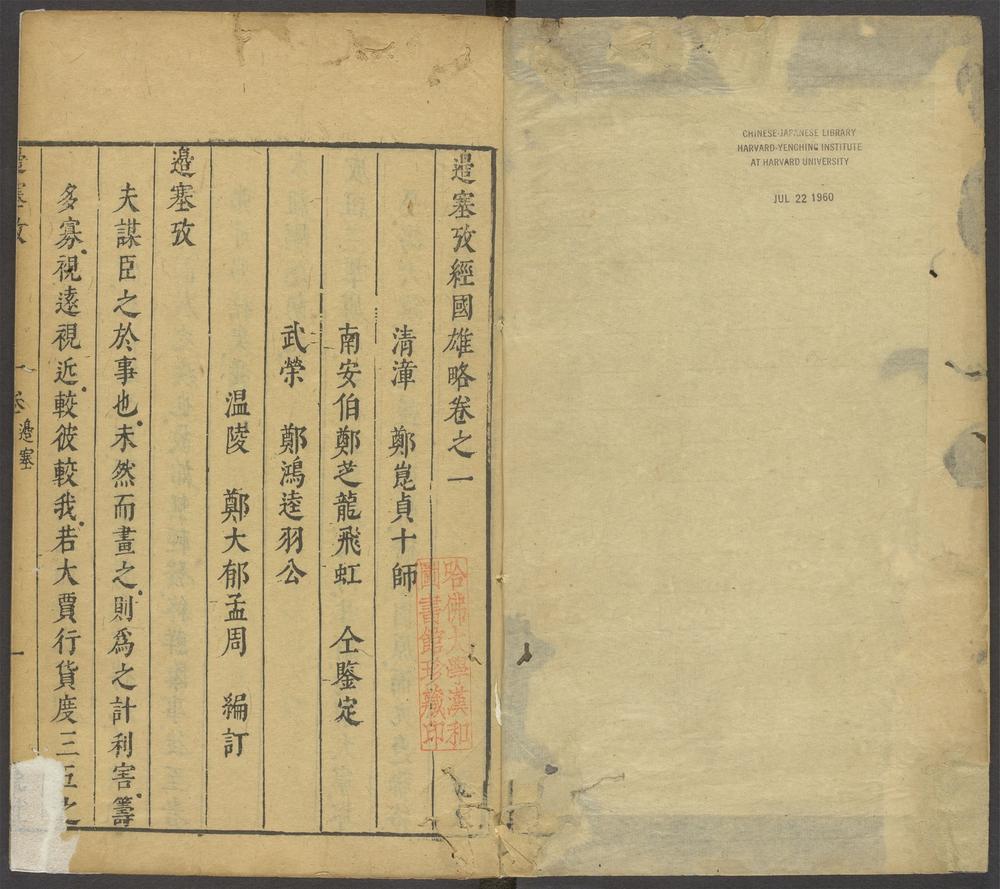 CHINESE-JAPANESE LIBRARY
HARVARD-YENCHING INSTITUTE
AT HARVARD UNIVERSITY
JUL 22 1960
邉塞攷經國雄略卷之一
清漳 鄭崑貞十師
南安伯鄭芝龍飛虹 仝鑒定
武榮 鄭鴻逵羽公
温陵 鄭大郁孟周 編訂
邉塞攷
夫謀臣之於事也未然而畫之則爲之計利害籌
多寡視逺視近較彼較我若大賈行貨度三五之
邉塞攷
卷
邉塞
一
哈佛大學漢和
圖書館珍藏印